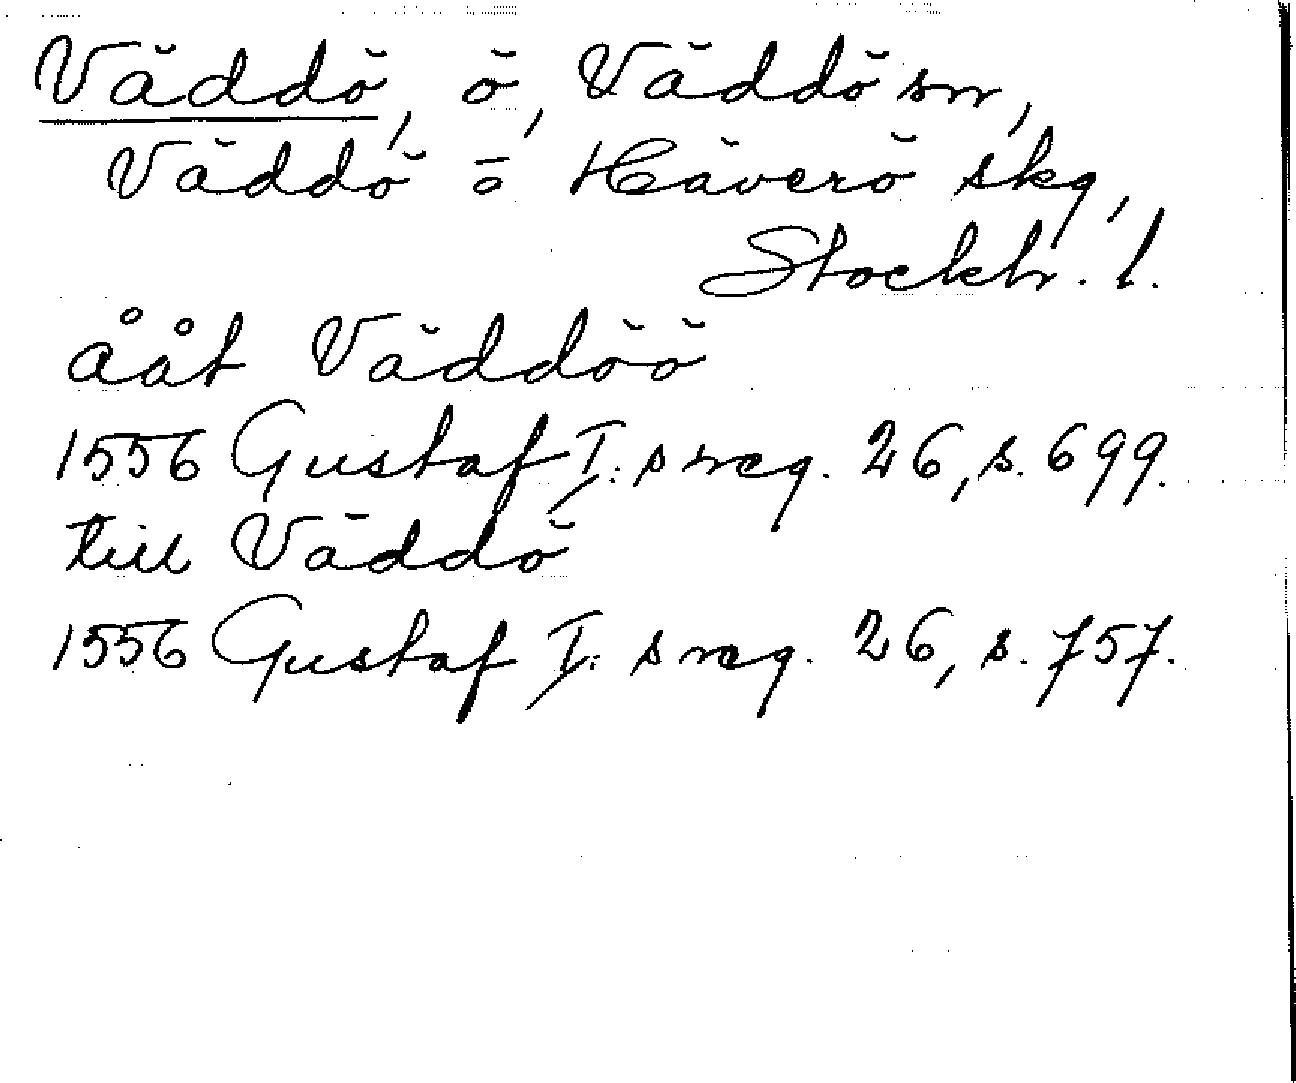 Väddö, ö, Väddö sn,
Väddö o Häverö skg,
Stockh. l.
ååt Väddöö
1556 Gustaf I:s reg. 26, s. 699.
till Väddö
1556 Gustaf I:s reg. 26, s. 757.